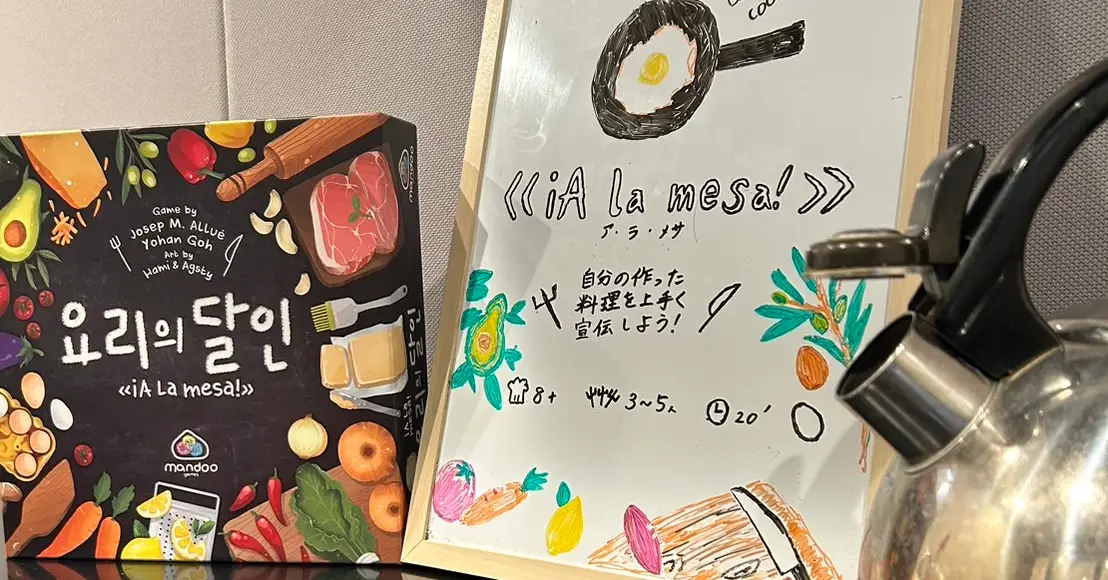 Game by
Josep M. Allué
Yohan Goh
Art by
Hami & Agsty
요리의 달인
«¡A La mesa!»
mandoo
games
mandoo
요리의 달인
«¡A La mesa!»
«¡A la mesa!»
ア・ラ・メサ
自分の作った
料理を上手く
宣伝しよう!
8+
3~5人
20'